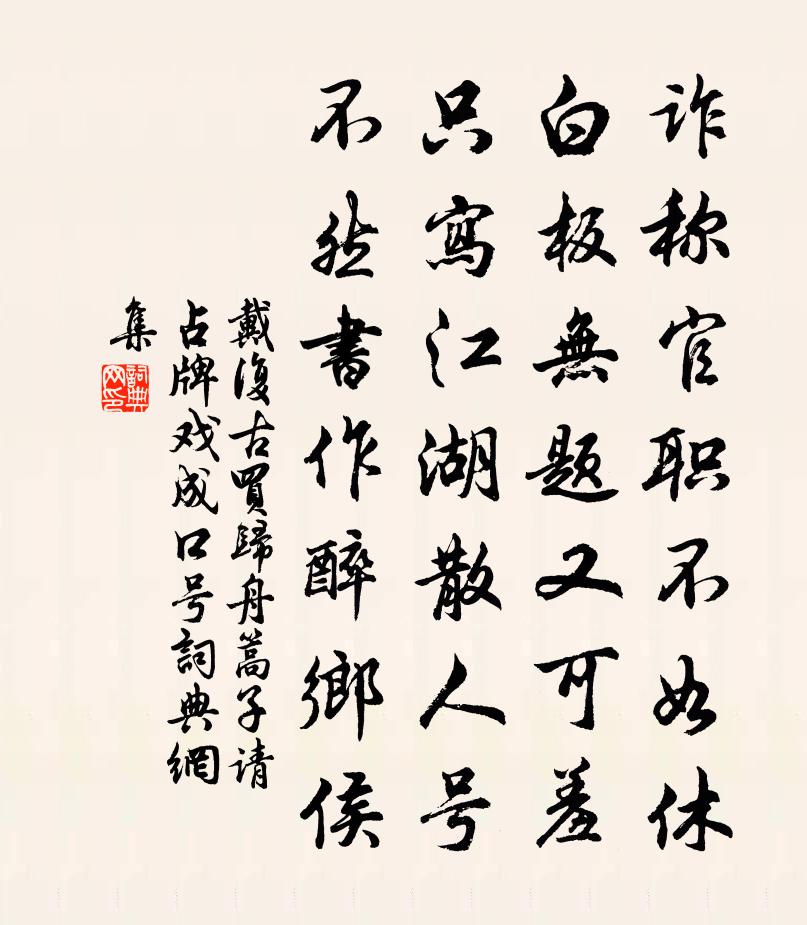 诈称官职不如休
白板無题又可羞
只寫江湖散人号
不然書作醉鄉侯
戴復古買歸舟篙子请
占牌戏成口号詞典網
集
詞典
网印